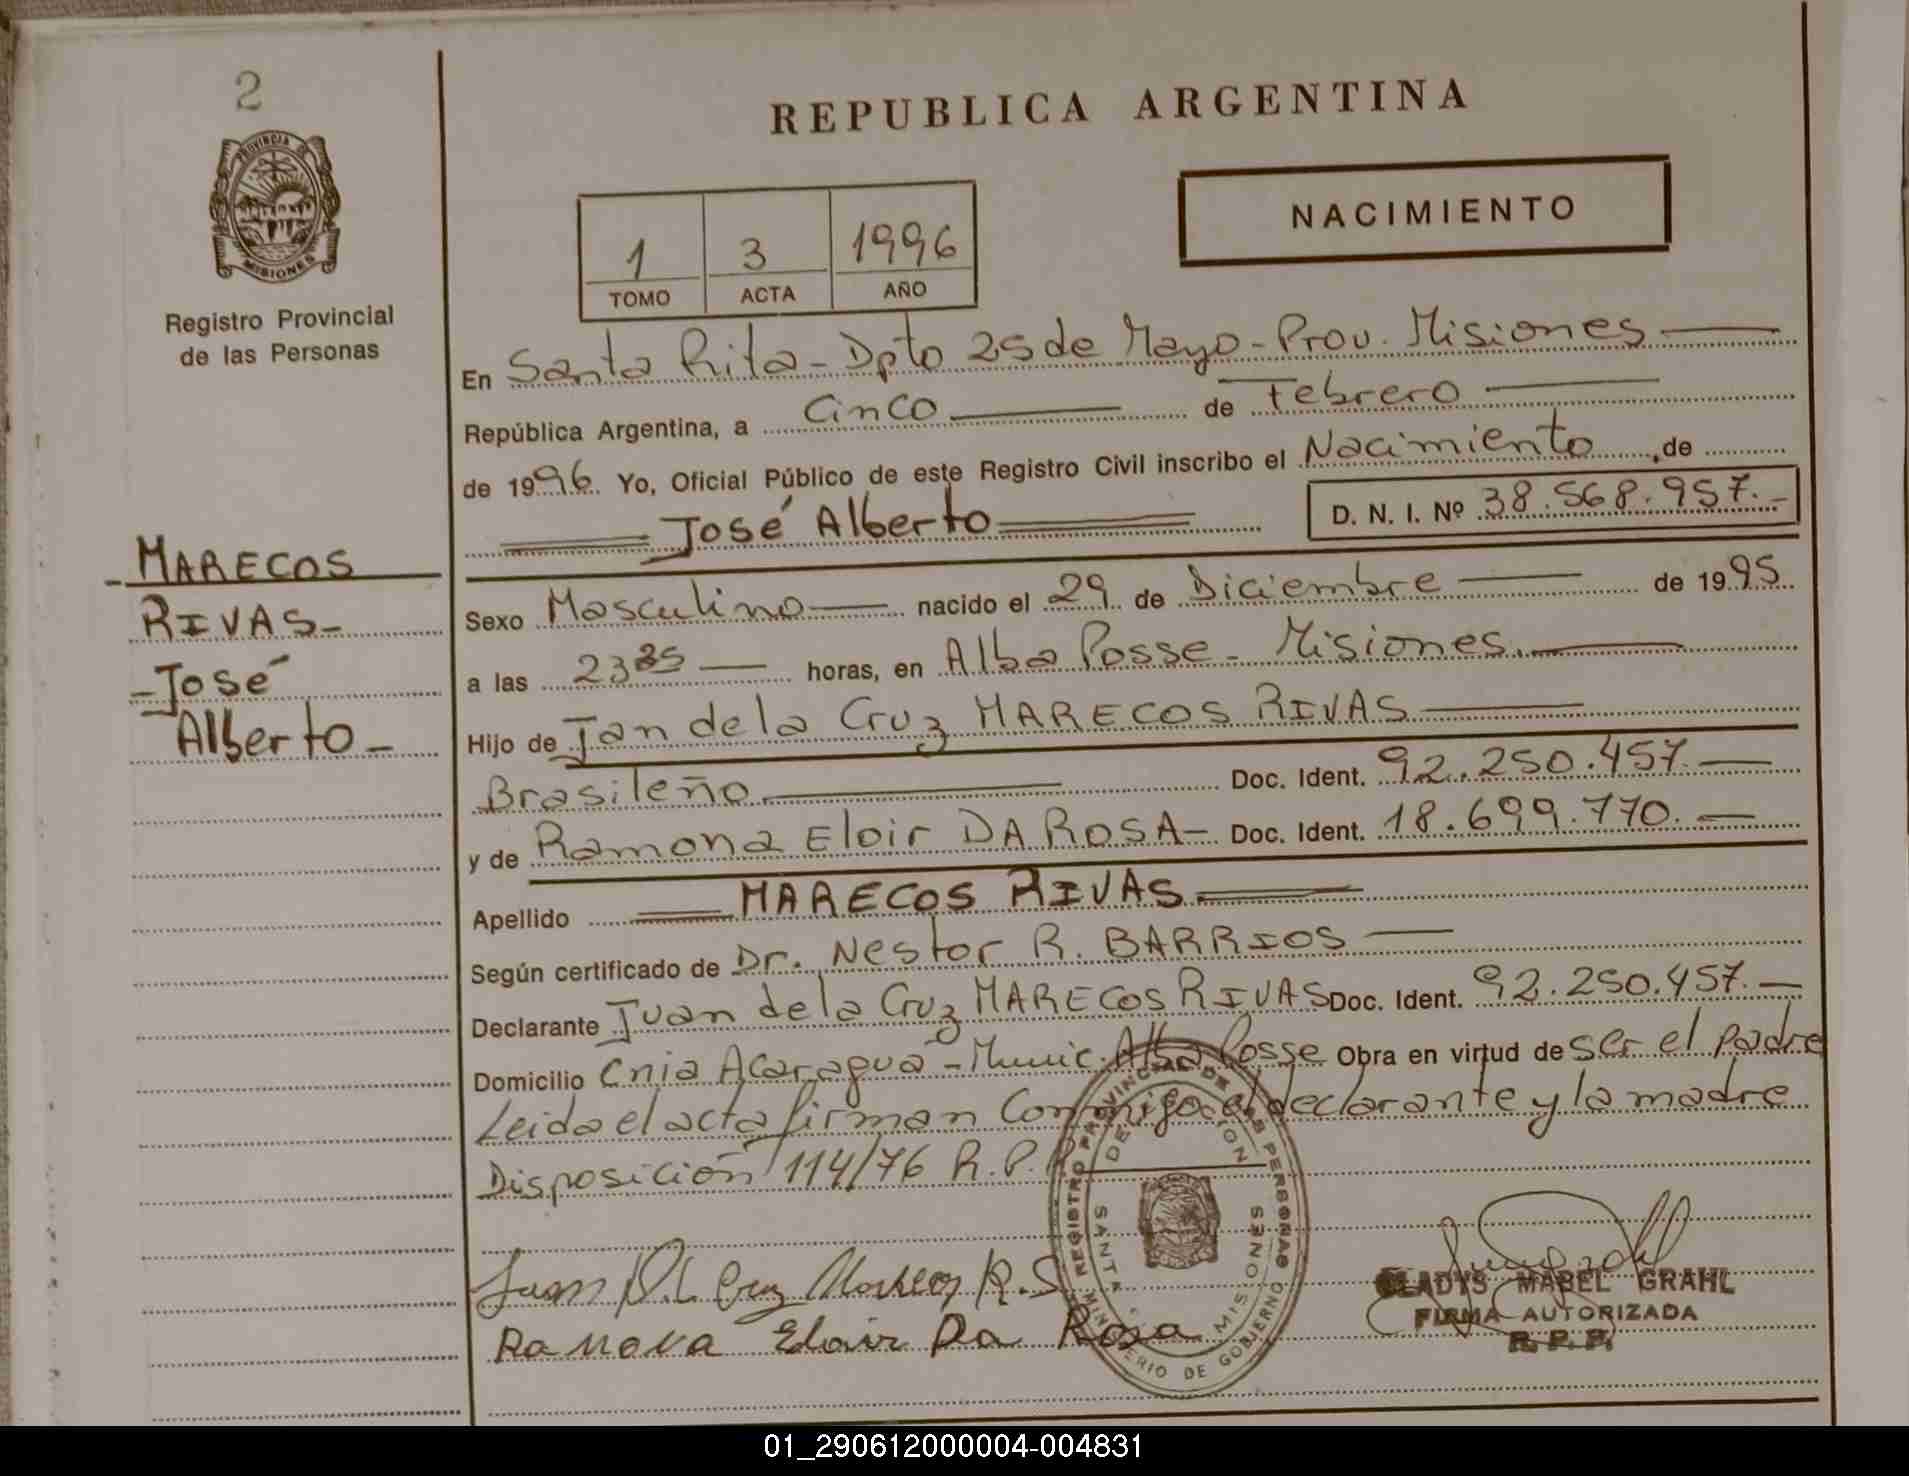 2
REPUBLICA ARGENTINA
PROVINCIA DE
MISIONES
Registro Provincial
de las Personas
1 3 1996
TOMO ACTA AÑO
NACIMIENTO
En Santa Rita - Dpto 25 de Mayo - Prov. Misiones
República Argentina, a Cinco de Febrero
de 1996 Yo, Oficial Público de este Registro Civil inscribo el Nacimiento, de
José Alberto D. N. I. Nº 38.568.957.-
MARECOS
RIVAS-
-José
Alberto-
Sexo Masculino nacido el 29 de Diciembre de 1995
a las 23 35 horas, en Alba Posse - Misiones.
Hijo de Jan de la Cruz MARECOS RIVAS
Brasileño. Doc. Ident. 92.250.457.
y de Ramona Eloir DA ROSA- Doc. Ident. 18.699.770.
Apellido MARECOS RIVAS.
Según certificado de Dr. Nestor R. BARRIOS
Declarante Juan de la Cruz MARECOS RIVAS Doc. Ident. 92.250.457.
Domicilio Cnia Acaragua - Munic. Alba Posse Obra en virtud de ser el padre
Leida el acta firman Conmigo el declarante y la madre
Disposición 114/76 R.P.P.
REGISTRO PROVINCIAL DE LAS PERSONAS
SANTA MISIONES
MINISTERIO DE GOBIERNO
Juan D.L Cruz Marecos R.S
Ramona Eloir Da Rosa
GLADYS MABEL GRAHL
FIRMA AUTORIZADA
R. P. P.
01_290612000004-004831